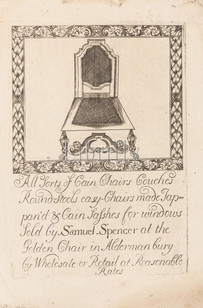 All Sorts of Cain Chairs Couches
Roundstools easy-Chairs made Jap-
pan'd & Cain Sasshes for windows
Sold by Samuel Spencer at the
Golden Chair in Alderman bury
by Wholesale or Retail at Reasonable
Rates